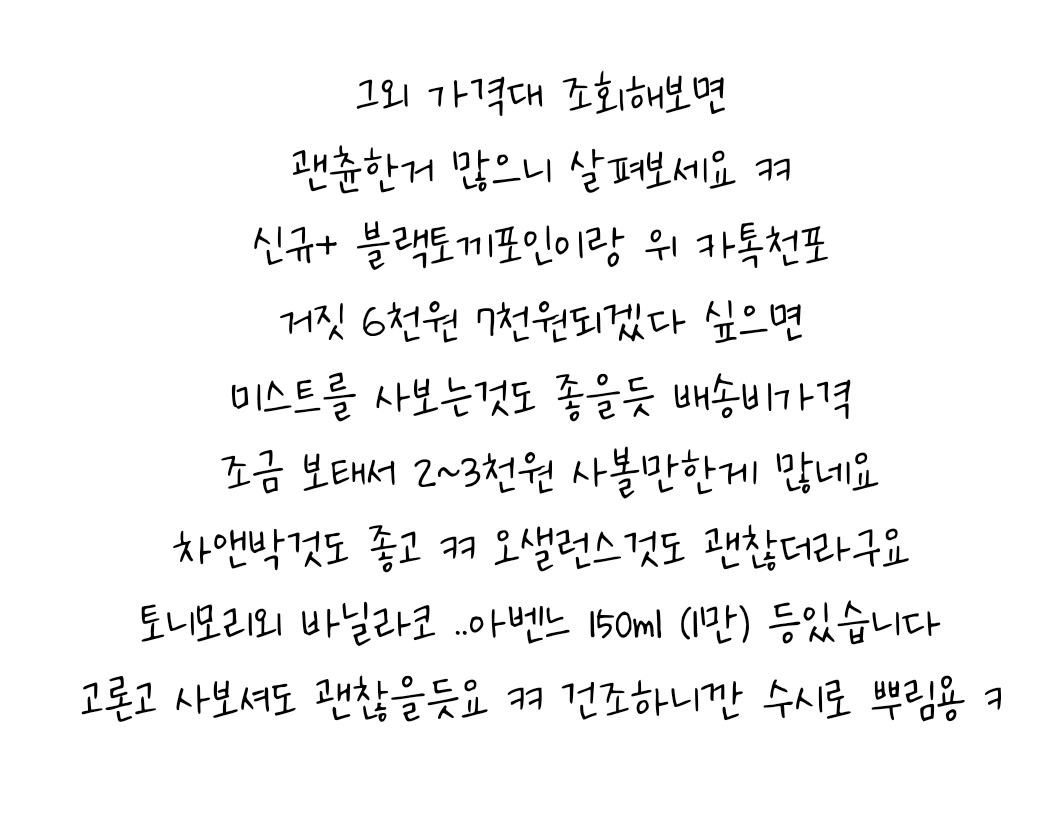 그외 가격대 조회해보면
괜츈한거 많으니 살펴보세요 ㅋㅋ
신규+ 블랙토끼포인이랑 위 카톡천포
거짓 6천원 7천원되겠다 싶으면
미스트를 사보는것도 좋을듯 배송비가격
조금 보태서 2~3천원 사볼만한게 많네요
차앤박것도 좋고 ㅋㅋ 오샐런스것도 괜찮더라구요
토니모리외 바닐라코 ..아벤느 150ml (1만) 등있습니다
고론고 사보셔도 괜찮을듯요 ㅋㅋ 건조하니깐 수시로 뿌림용 ㅋ